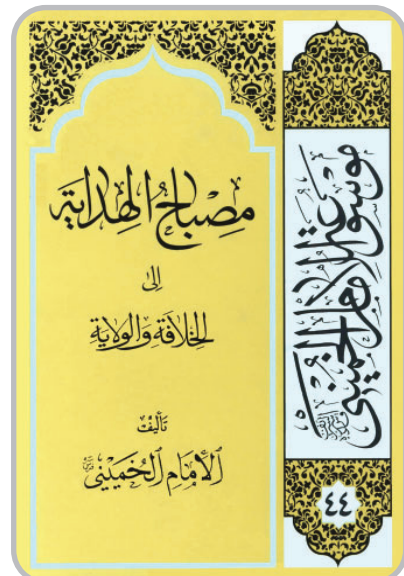 مِصْبَاحُ الْهِدَايَة
إِلَى
الْخِلَافَةِ وَالْوِلَايَة
تَأْلِيفُ
الْإِمَامِ الْخُمَيْنِي
موسوعة الإمام الخميني
٤٤